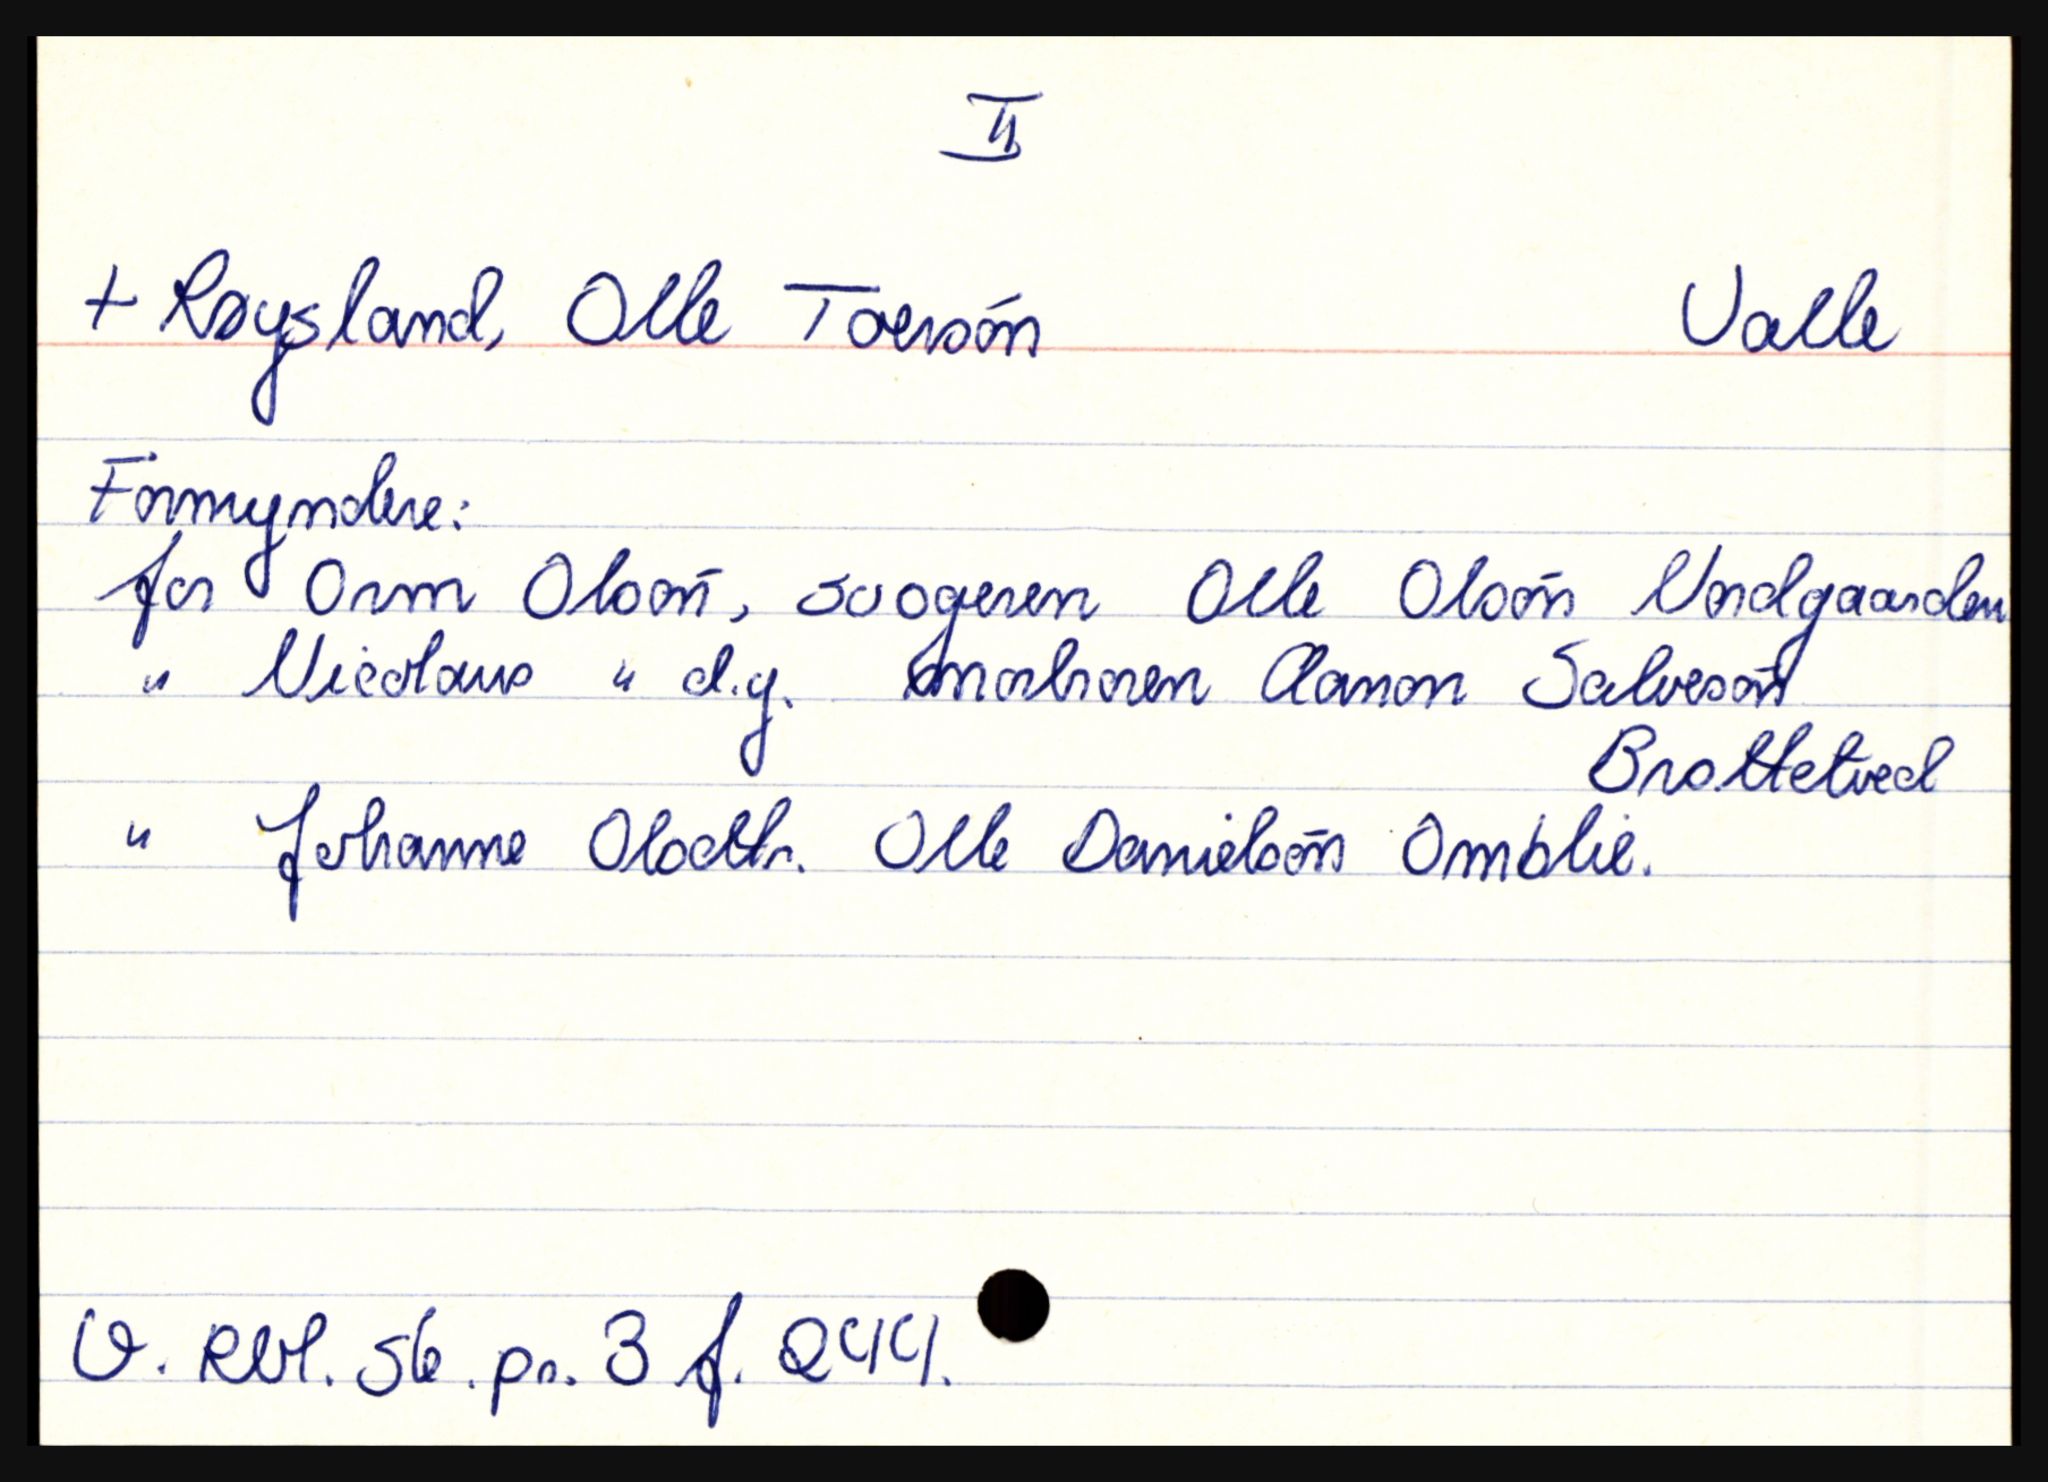 II
+ Røysland, Olle Toersøn̄ Valle
Formyndere:
for Orm Olsøn̄, svogeren Olle Olsøn̄ Nordgaarden
" Nicolaus " d.y. morbroren Aanon Salvesøn̄
Brottetved
" Johanne Olsdtr. Olle Danielsøn̄ Omblie.
V. Rbl. sk. pr. 3 f. 244.